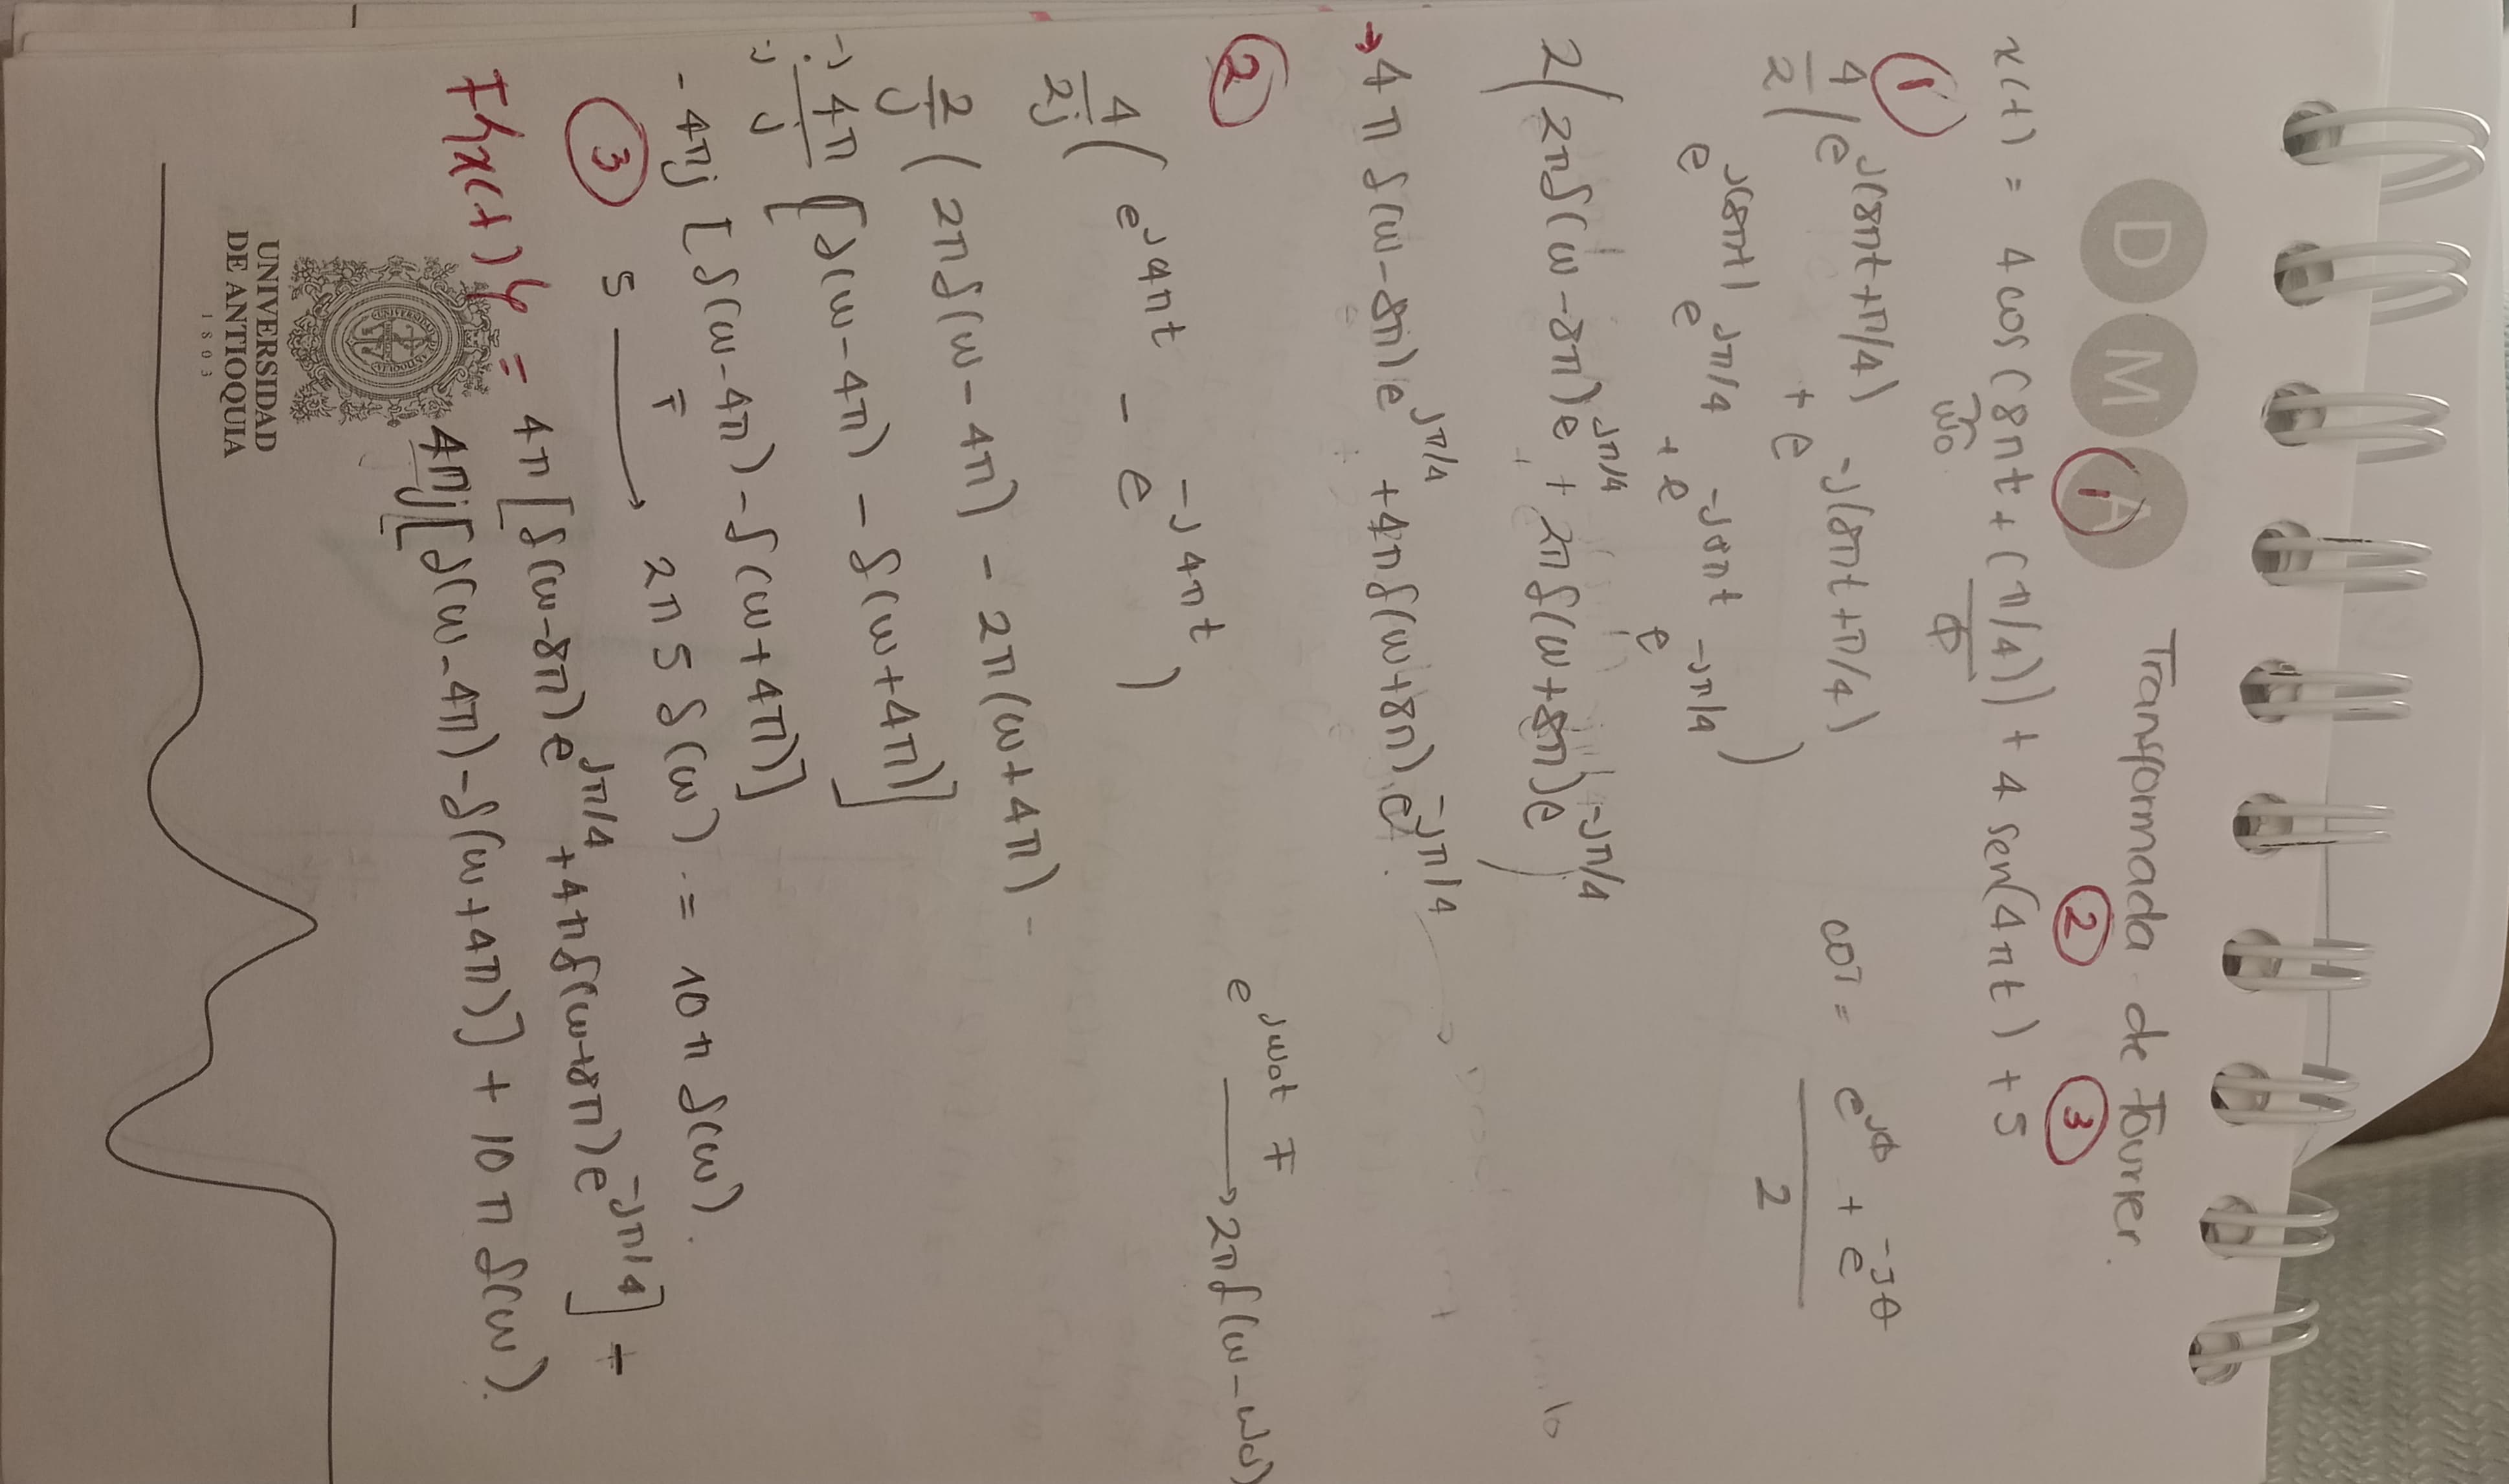 D M A
Transformada de Fourier.
① ② ③
x(t) = 4 cos (8πt + (π/4)) + 4 sen(4πt) + 5
ω₀ Φ
①
4/2 (e^{j(8πt+π/4)} + e^{-j(8πt+π/4)})
cos = (e^{jΦ} + e^{-jθ})/2
e^{j(8πt)} e^{jπ/4} + e^{-j8πt} e^{-jπ/4}
2(2πδ(ω-8π)e^{jπ/4} + 2πδ(ω+8π)e^{-jπ/4})
→ 4πδ(ω-8π)e^{jπ/4} + 4πδ(ω+8π)e^{-jπ/4}.
②
e^{jω₀t} F → 2πδ(ω-ω₀)
4/2j (e^{j4πt} - e^{-j4πt})
2/j (2πδ(ω-4π) - 2π(ω+4π) -
-j/-j · 4π/j [δ(ω-4π) - δ(ω+4π)]
-4πj [δ(ω-4π) - δ(ω+4π)]
③ 5 F → 2π5δ(ω) = 10πδ(ω).
F{x(t)} = 4π[δ(ω-8π)e^{jπ/4} + 4πδ(ω+8π)e^{-jπ/4}] -
4πj[δ(ω-4π) - δ(ω+4π)] + 10πδ(ω).
UNIVERSIDAD
DE ANTIOQUIA
1803